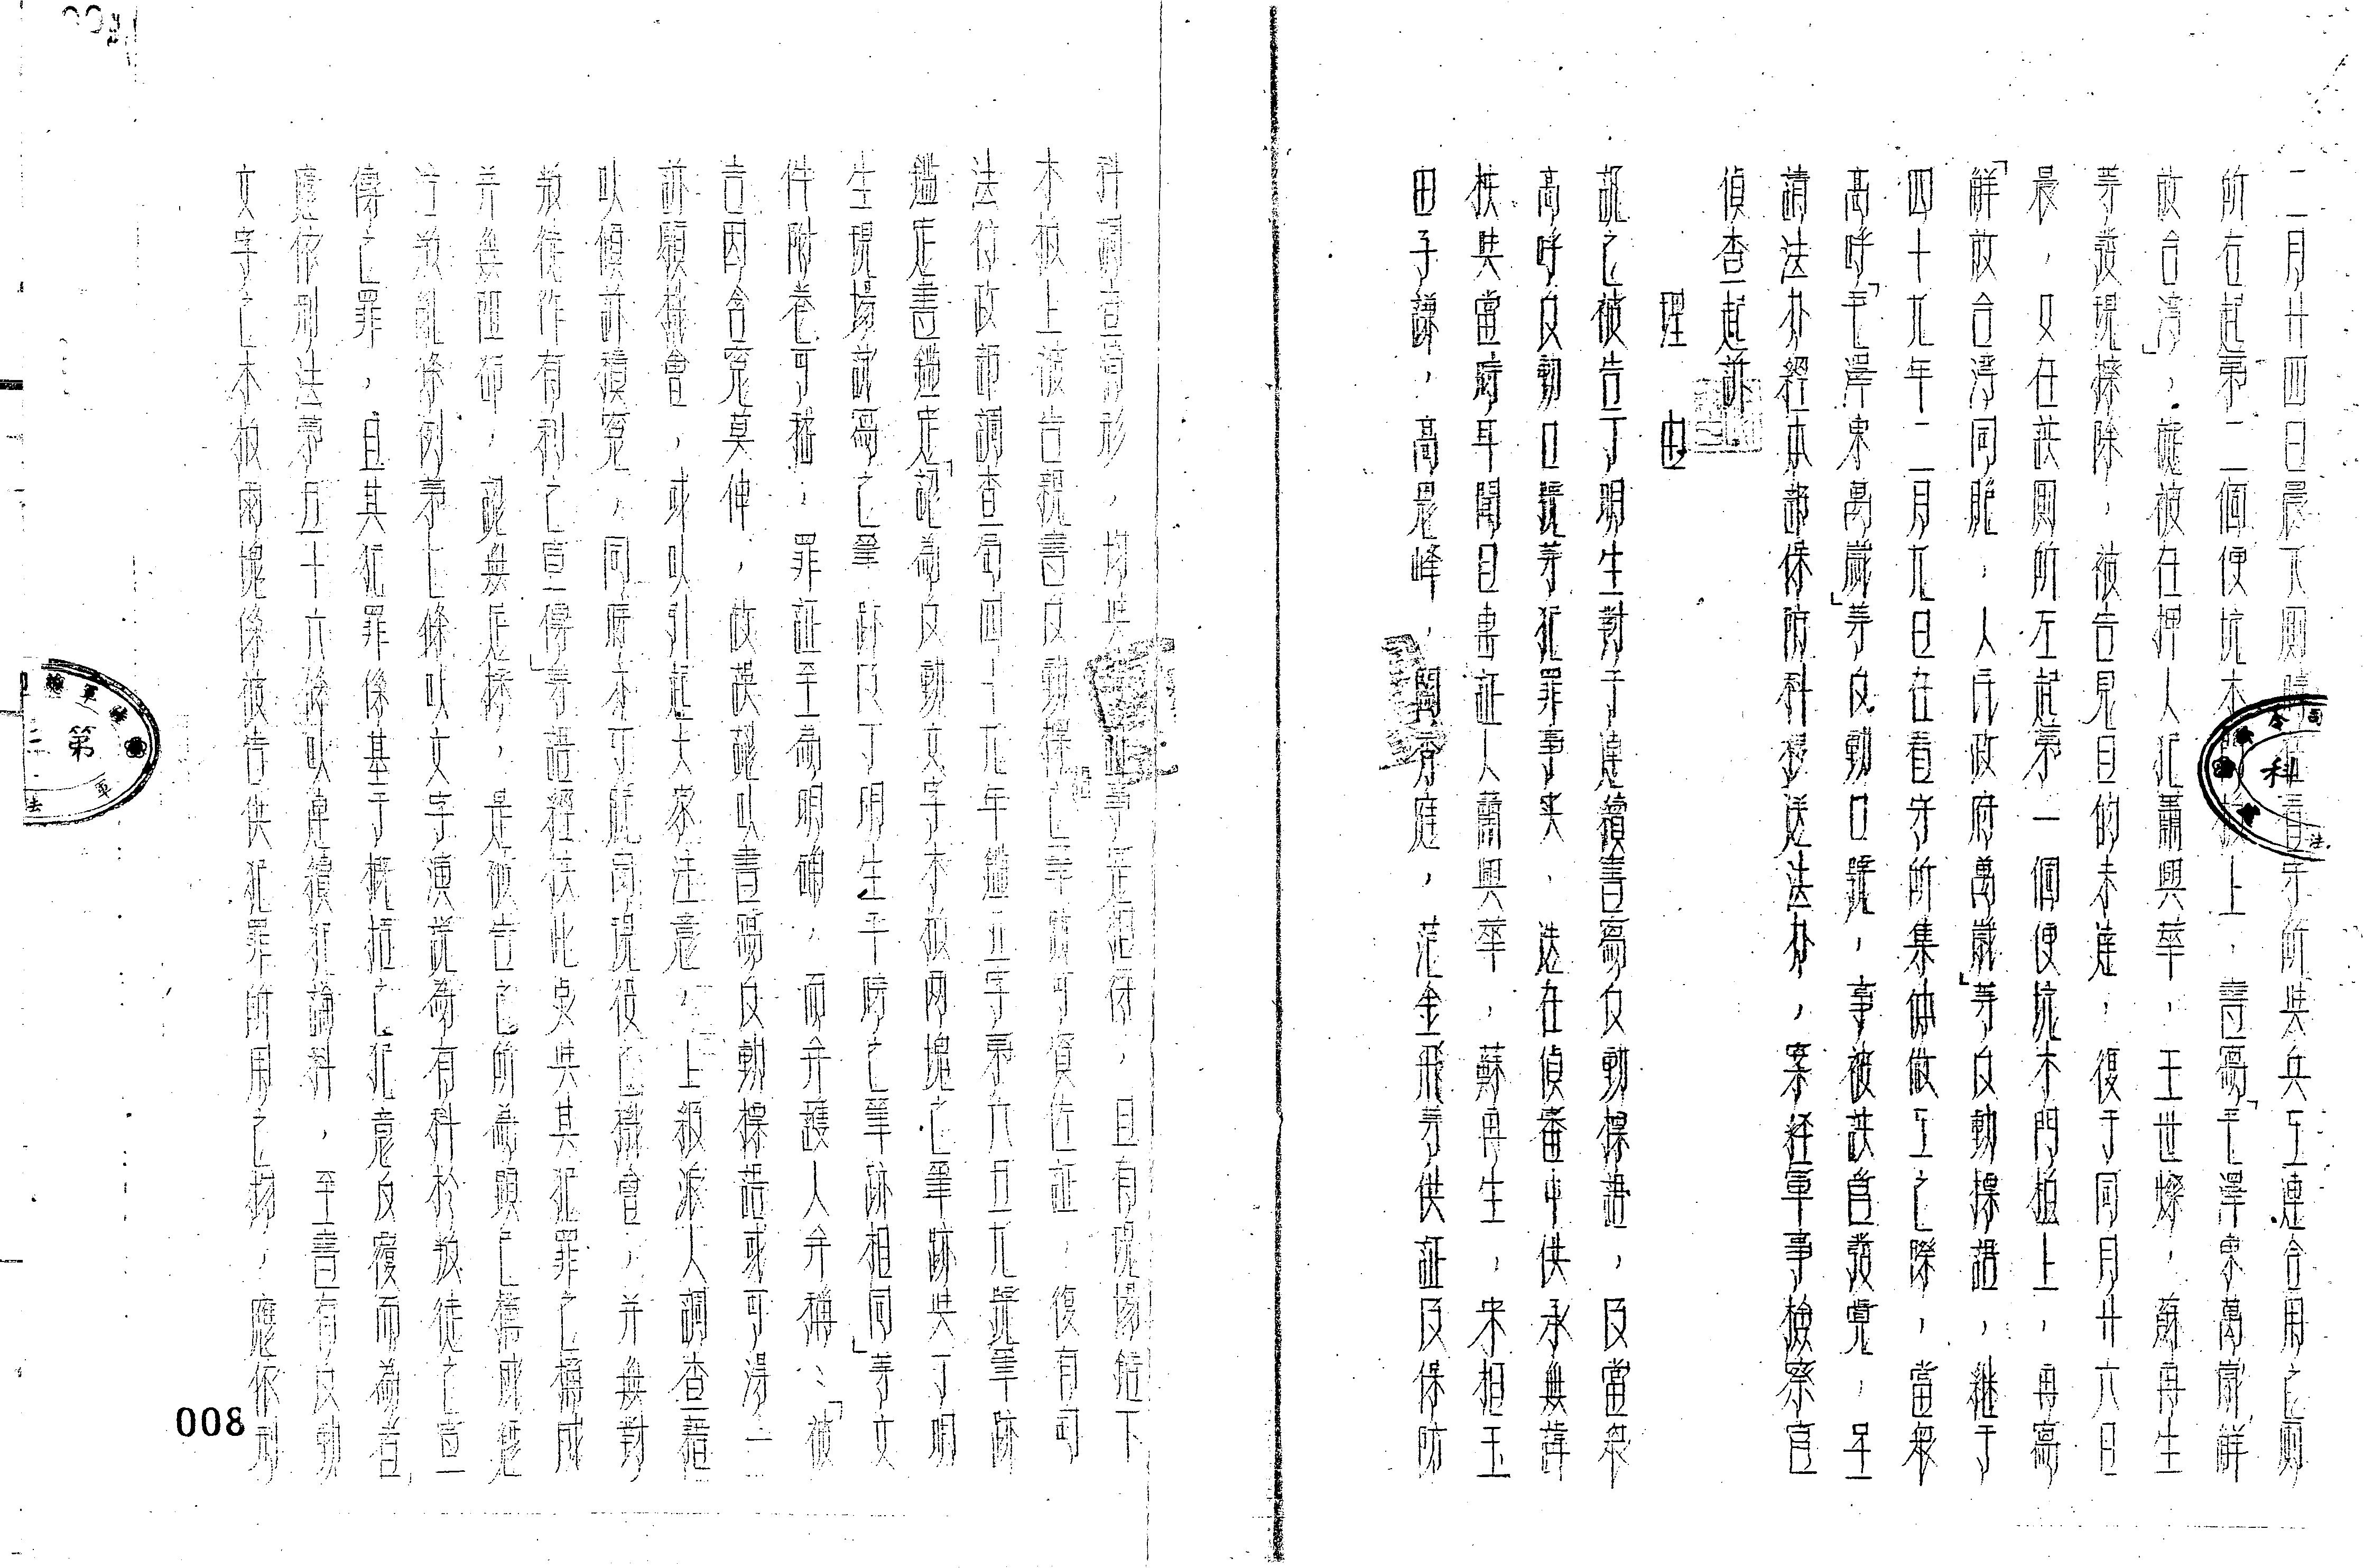 二月廿四日晨下厠時在看守所與兵工連合用之厠
所右起第二個便坑木門板上,書寫「毛澤東萬歲解
放台灣」,旋被在押人犯蕭興華,王世燦,蘇再生
等發現擦除,被告見目的未達,復于同月廿六日
晨,又在該厠所左起第一個便坑木門板上,再寫
「解放台灣同胞,人民政府萬歲」等反動標語,継于
四十九年二月九日在看守所集体做工之際,當衆
高呼「毛澤東萬歲」等反動口號,事被該管發覺,呈
請法办經本部保防科移送法办,案経軍事檢察官
偵查起訴
理由
訊之被告丁明生對于連續書寫反動標語,及當衆
高呼反動口號等犯罪事实,迭在偵審中供承無諱
核與當時耳聞目睹証人蕭興華,蘇再生,宋相玉
田子謙,高恩峰,關秀庭,范金飛等供証及保防
科調查情形,均與事証等是相符,且有現場鋸下
木板上被告親書反動標语事蹟可資佐証,復有司
法行政部調查局四十九年鑑五字第六五九號筆跡
鑑定書鑑定「認為反動文字木板两塊之筆跡與丁明
生現場試寫之筆跡及丁明生平時之筆跡相同」等文
件附卷可稽,罪証至為明確,而弁護人弁稱:「被
告因含寃莫伸,故誤認以書寫反動標語或可湯二
訴願機會,或以引起大家注意,上級派人調查藉
以傾訴積寃,同時亦可能局現役之機會,并無對
叛徒作有利之宣傳」等語經核此點與其犯罪之構成
并無阻却,認無足採,是被告之所為顯已構成懲
治叛亂條例第七條以文字演說為有利於叛徒之宣
傳之罪,且其犯罪係基于概括之犯意反覆而為者,
應依刑法第五十六條以連續犯論科,至書有反動
文字之木板兩塊係被告供犯罪所用之物,應依刑
008
第
科